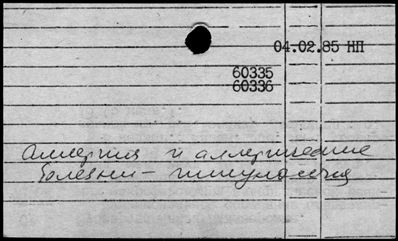 04.02.85 НП
60335
60336
аллергия и аллергические
болезни - иммунология